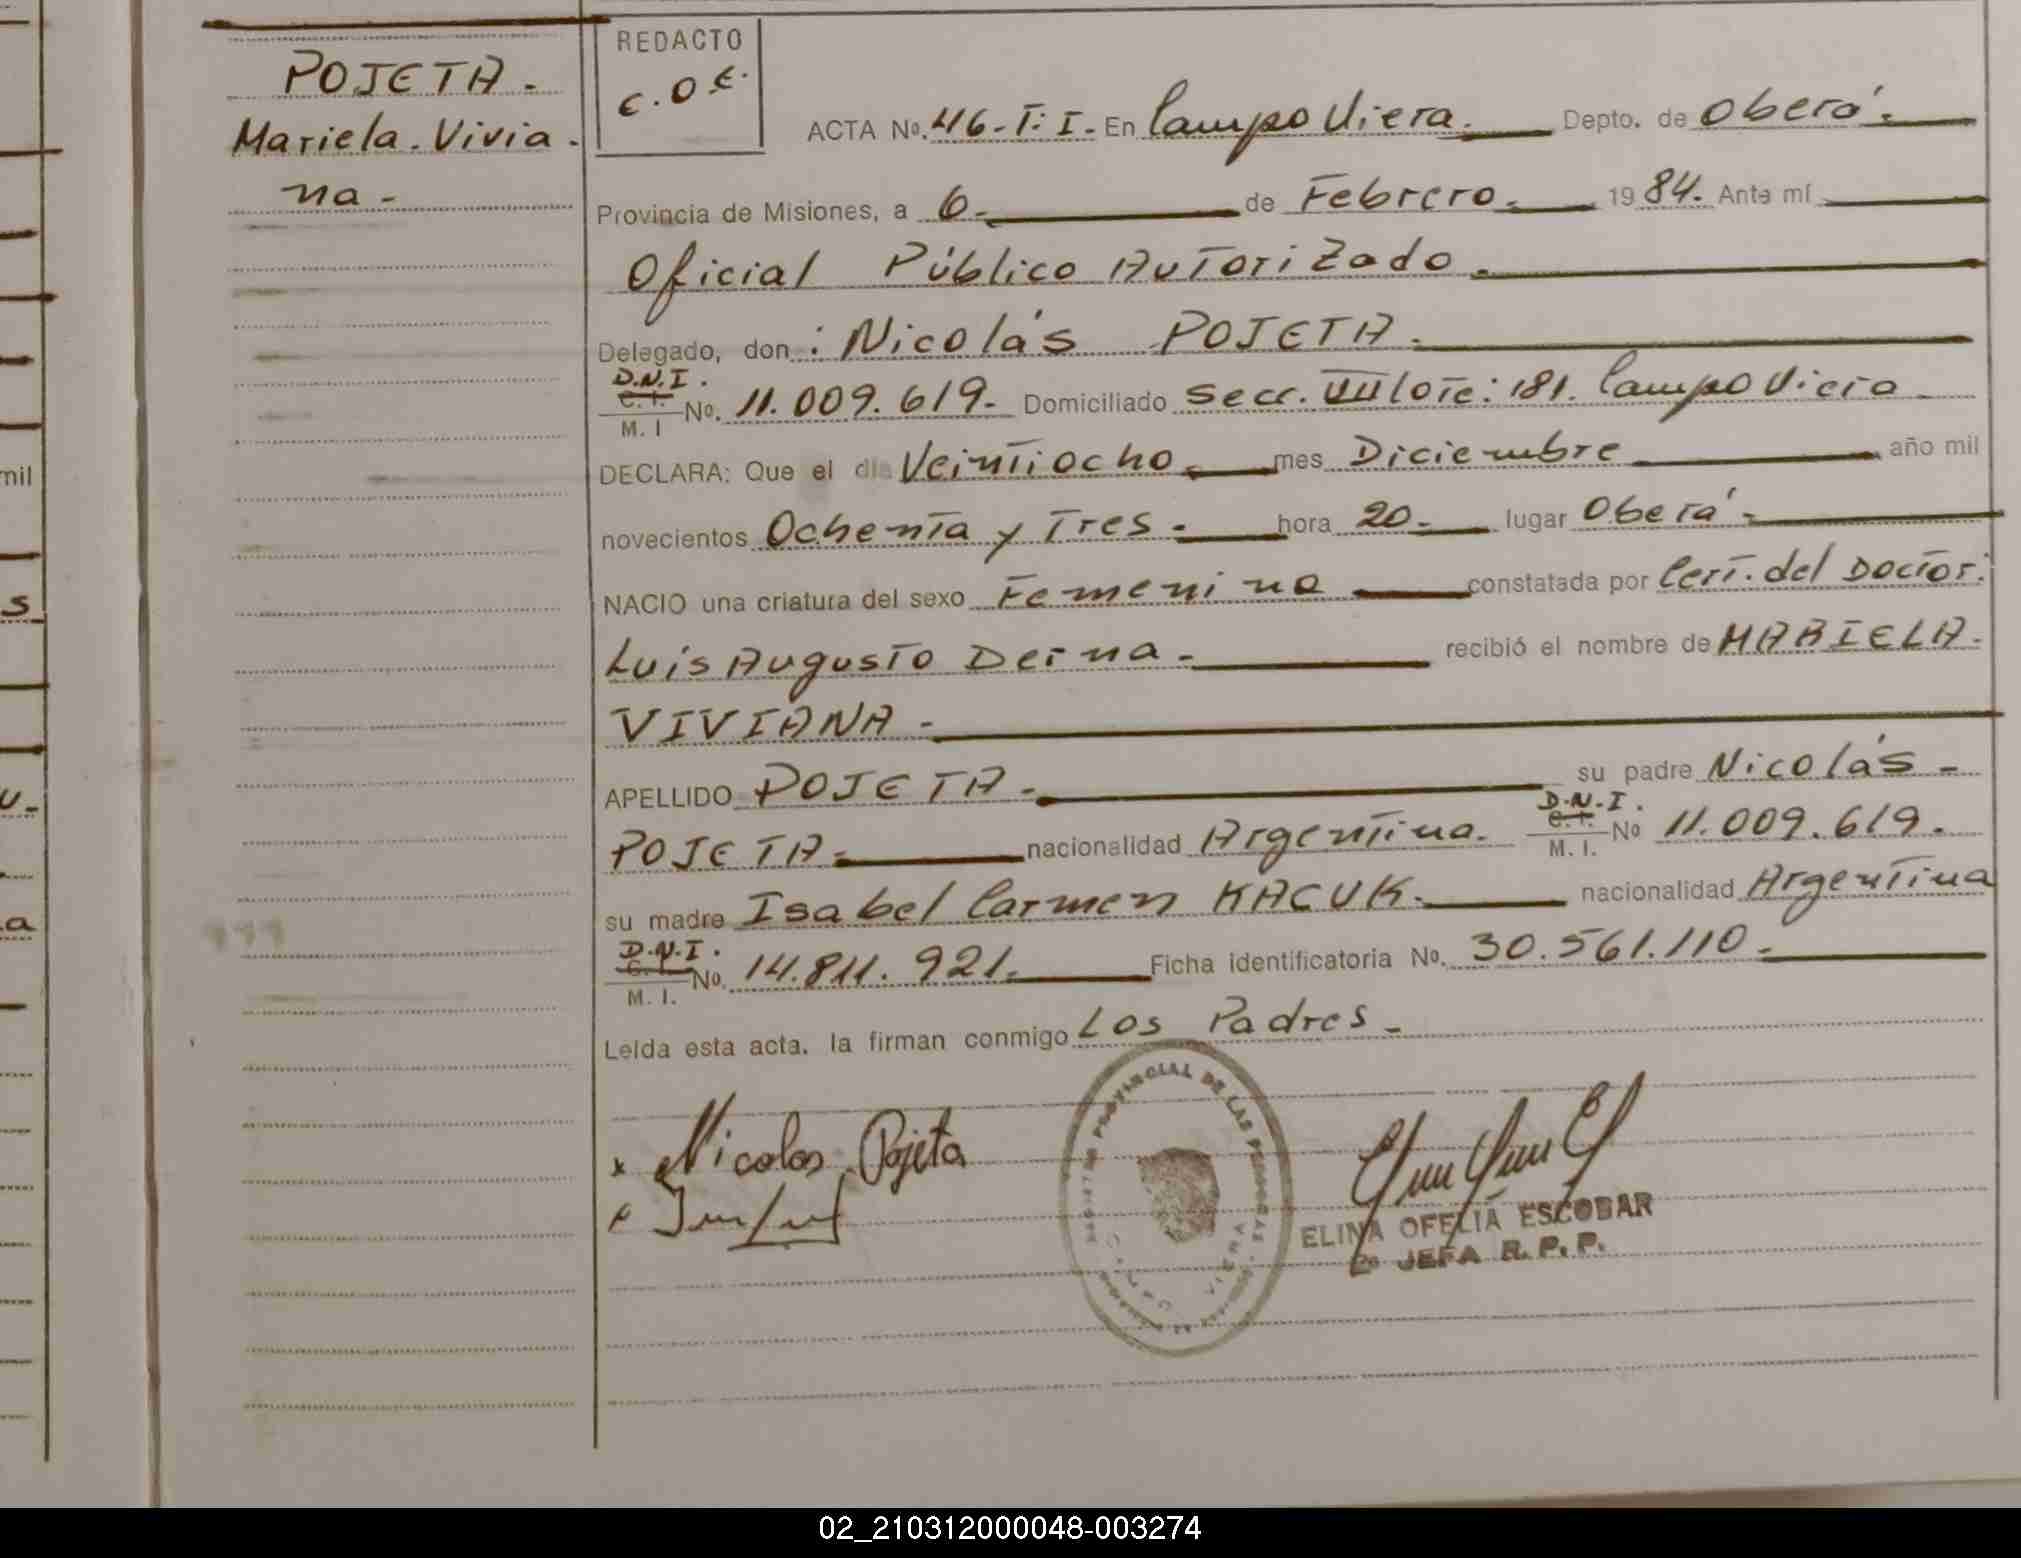 POJETA.
Mariela. Vivia
na.
REDACTO
ACTA No. 46. T: I. En Campo Viera. Depto. de Oberá.
Provincia de Misiones, a 6. de Febrero. 1984. Ante mí
Oficial Público Autorizado.
Delegado, don: Nicolás POJETA.
D.N.I.
C. I.
M. I No. 11.009.619. Domiciliado Secc. VIII lote: 181. Campo Viera
DECLARA: Que el día Veintiocho. mes Diciembre año mil
novecientos Ochenta y Tres. hora 20. lugar Oberá.
NACIO una criatura del sexo Femenino constatada por Cert. del Doctor:
Luis Augusto Derna. recibió el nombre de MARIELA.
VIVIANA.
APELLIDO POJETA. su padre Nicolás
POJETA. nacionalidad Argentina. D.N.I. C. I. M. I. No 11.009.619.
su madre Isabel Carmen KACUK. nacionalidad Argentina
D.N.I.
C. I.
M. I. No. 14.811.921. Ficha identificatoria No. 30.561.110.
Leída esta acta, la firman conmigo Los Padres.
x Nicolas Pojeta
PROVINCIAL DE LAS PERSONAS
VIERA
ELINA OFELIA ESCOBAR
JEFA R.P.P.
mil
s
a
02_210312000048-003274